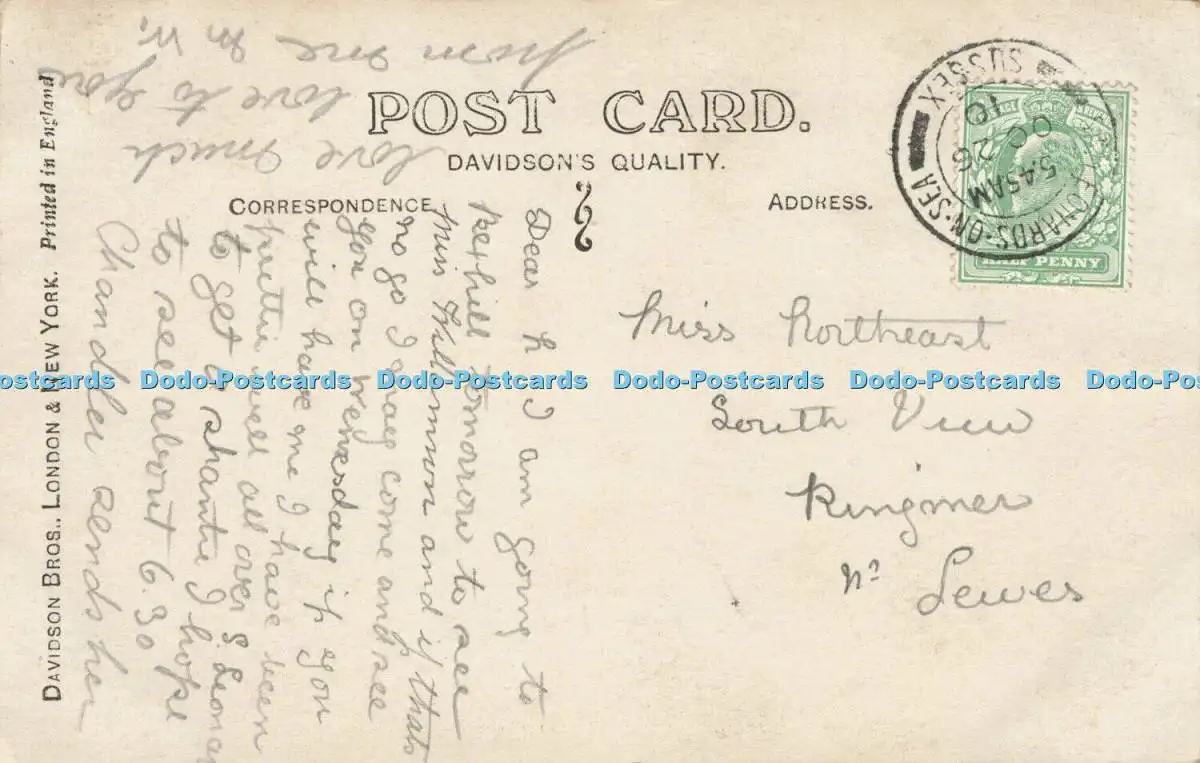 POST CARD.
DAVIDSON'S QUALITY.
CORRESPONDENCE
ADDRESS.
DAVIDSON BROS., LONDON & NEW YORK. Printed in England
SUSSEX
ON-SEA
5.45AM
OC 26
10
HALF PENNY
Miss Northeast
South View
Ringmer
Nr Lewes
Dear h I am going to
Bexhill tomorrow to see
Miss and if thats
no go I may come and see
you on Wensday if you
will have me I have been
well all over S. Leonar
to get a I hope
to see about 6.30
Chandler sends her
love much
love to you
from me
M.
Dodo-Postcards Dodo-Postcards Dodo-Postcards Dodo-Postcards Dodo-Postcards